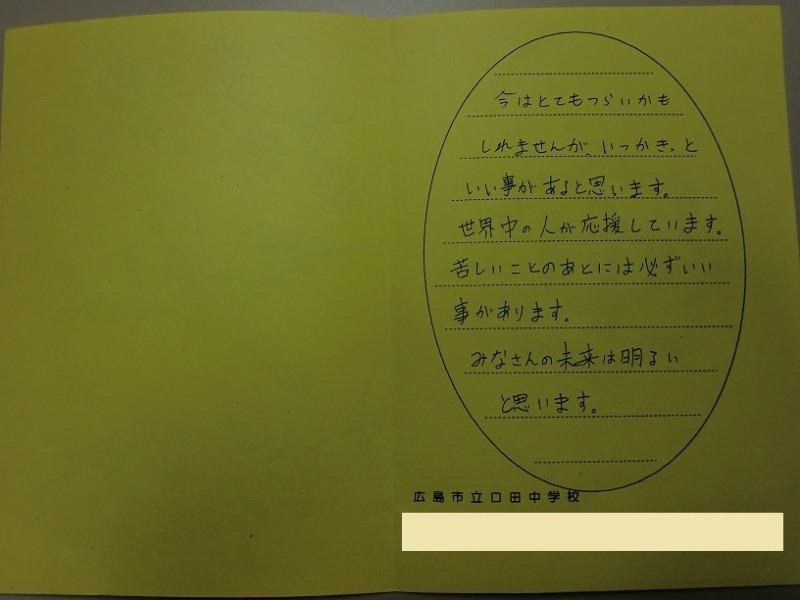 今はとてもつらいかも
しれませんが、いつかきっと
いい事があると思います。
世界中の人が応援しています。
苦しいことのあとには必ずいい
事があります。
みなさんの未来は明るい
と思います。
広島市立口田中学校